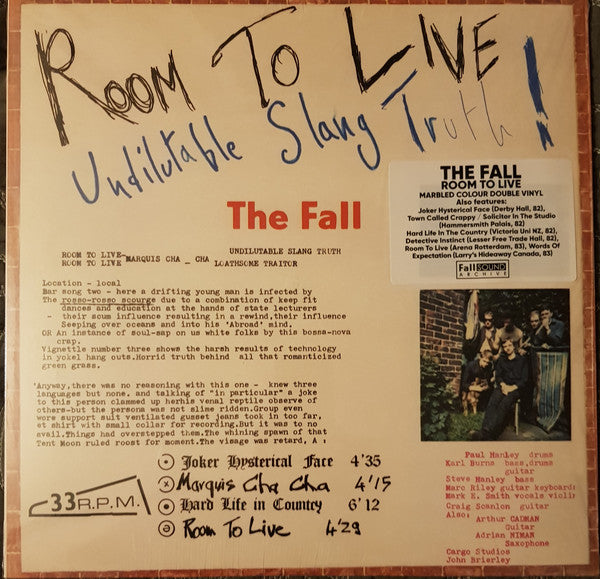 ROOM TO LIVE
Undilutable Slang Truth!
The Fall
THE FALL
ROOM TO LIVE
MARBLED COLOUR DOUBLE VINYL
Also features:
Joker Hysterical Face (Derby Hall, 82),
Town Called Crappy / Solicitor In The Studio
(Hammersmith Palais, 82)
Hard Life In The Country (Victoria Uni NZ, 82),
Detective Instinct (Lesser Free Trade Hall, 82),
Room To Live (Arena Rotterdam, 83), Words Of
Expectation (Larry's Hideaway Canada, 83)
Fall SOUND
ARCHIVE
UNDILUTABLE SLANG TRUTH
ROOM TO LIVE-MARQUIS CHA _ CHA
ROOM TO LIVE LOATHSOME TRAITOR
Location - local
Bar song two - here a drifting young man is infected by
The rosso-rosso scourge due to a combination of keep fit
dances and education at the hands of state lecturers
- their scum influence resulting in a rewind,their influence
Seeping over oceans and into his 'Abroad' mind.
OR An instance of soul-sap on us white folks by this bossa-nova
crap.
Vignette number three shows the harsh results of technology
in yokel hang outs.Horrid truth behind all that romanticized
green grass.
'Anyway,there was no reasoning with this one - knew three
languages but none. and talking of "in particular" a joke
to this person clammed up herhis venal reptile observe of
others-but the persona was not slime ridden.Group even
wore support suit ventilated gusset jeans took in too far,
et shirt with small collar for recording.But it was to no
avail.Things had overstepped them.The whining spawn of that
Tent Moon ruled roost for moment.The visage was retard, A :
33 R.P.M.
Joker Hysterical Face 4'35
Marquis Cha Cha 4'15
Hard Life in Country 6'12
Room To Live 4'29
Paul Hanley drums
Karl Burns bass,drums
guitar
Steve Hanley bass
Marc Riley guitar keyboards
Mark E. Smith vocals violin
Craig Scanlon guitar
Also:
Arthur CADMAN
Guitar
Adrian NIMAN
Saxophone
Cargo Studios
John Brierley